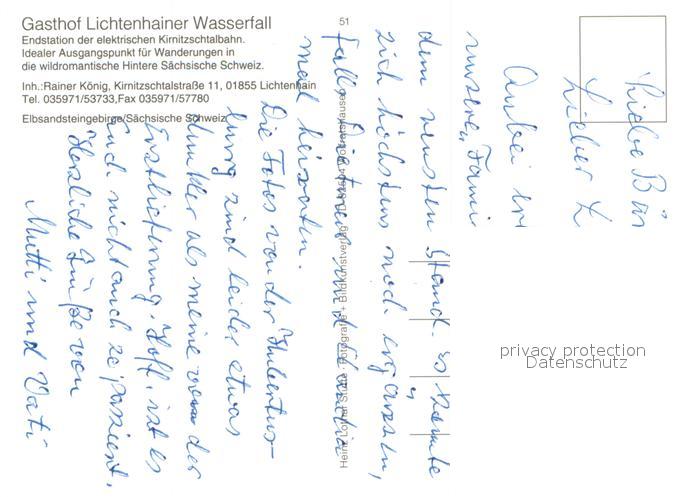 Gasthof Lichtenhainer Wasserfall
Endstation der elektrischen Kirnitzschtalbahn.
Idealer Ausgangspunkt für Wanderungen in
die wildromantische Hintere Sächsische Schweiz.
Inh.:Rainer König, Kirnitzschtalstraße 11, 01855 Lichtenhain
Tel. 035971/53733,Fax 035971/57780
Elbsandsteingebirge/Sächsische Schweiz
51
Liebe B
Lieber
Anbei
unserer Fami
dem neusten Stand. Es könnte
sich höchstens noch ergänzen,
falls
mal heiraten.
Die Fotos von der Hubertus-
burg sind leider etwas
dunkler als meine von der
Erstlieferung. Hoff. ist es
Euch nicht auch so passiert.
Herzliche Grüße von
Mutti und Vati
privacy protection
Datenschutz